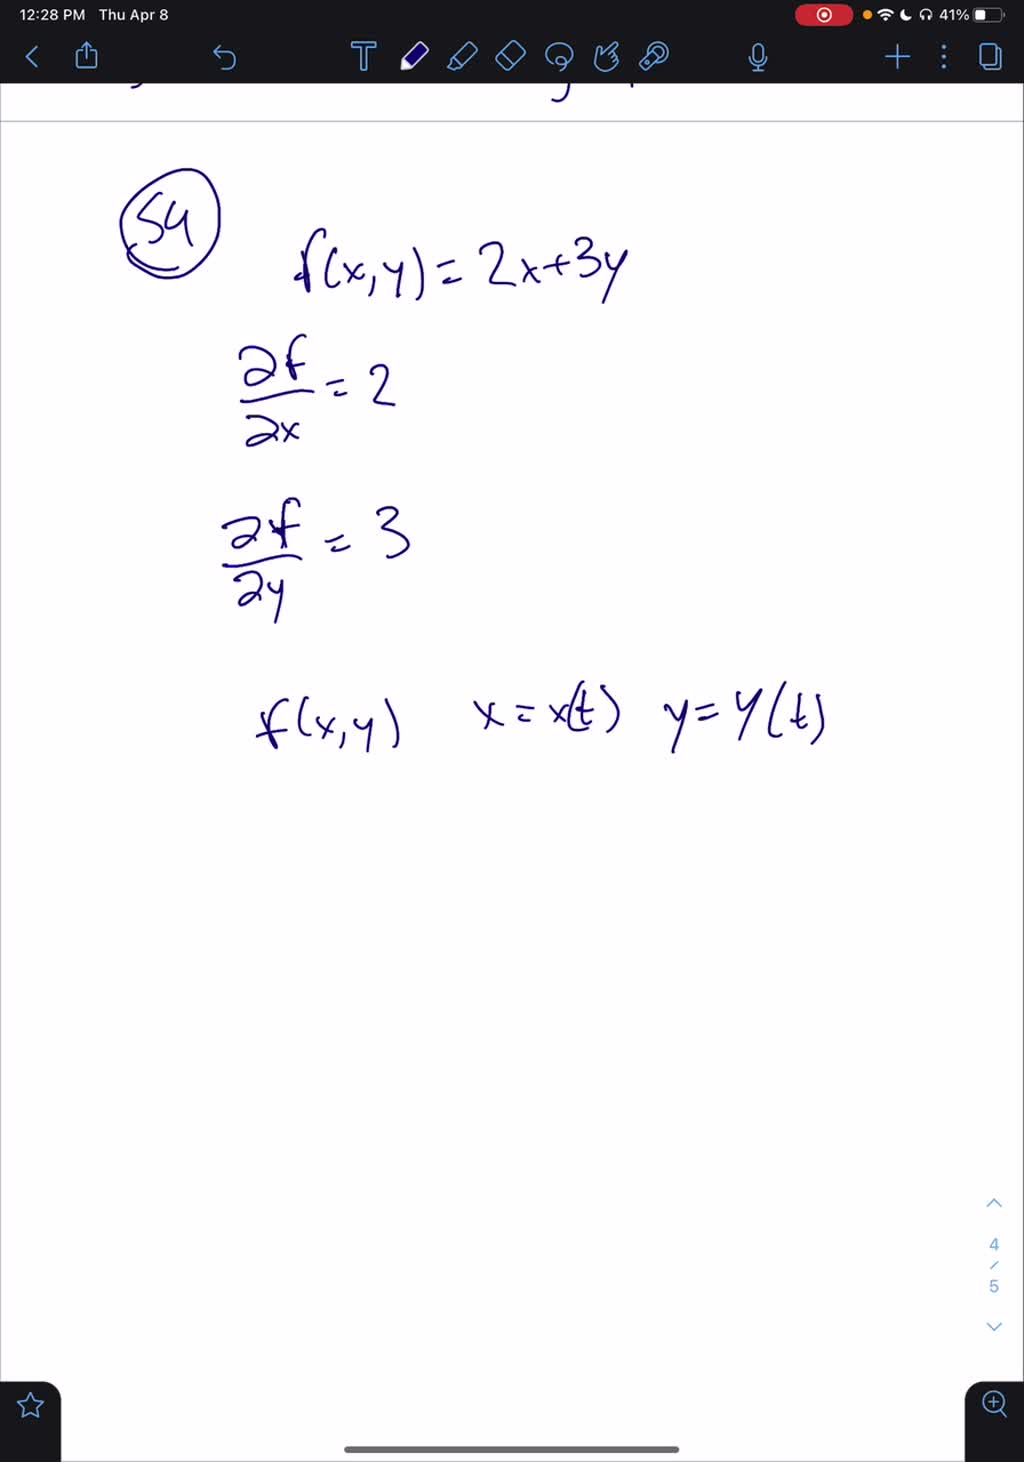 12:28 PM Thu Apr 8 41%
T
54
f(x,y)=2x+3y
∂f/∂x = 2
∂f/∂y = 3
f(x,y) x=x(t) y=y(t)
4
/
5